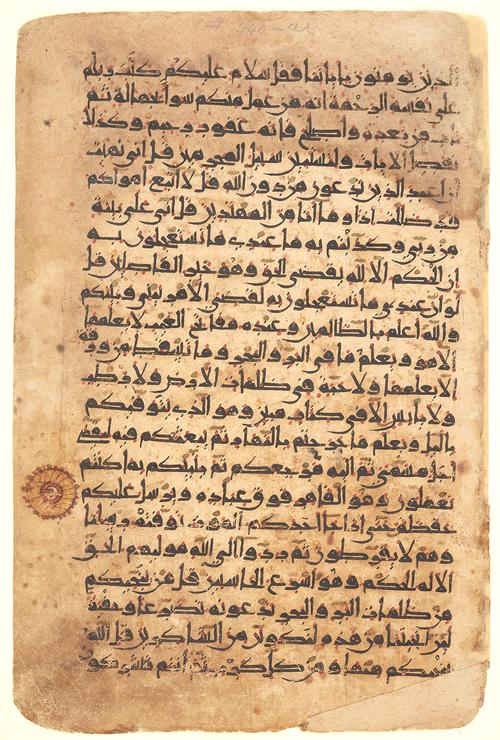 الذين يومنون باياتنا فقل سلام عليكم كتب ربكم
على نفسه الرحمة انه من عمل منكم سوا بجهالة ثم
تاب من بعده واصلح فانه غفور رحيم وكذلك
نفصل الايات ولتستبين سبيل المجرمين قل اني نهيت
ان اعبد الذين تدعون من دون الله قل لا اتبع اهواكم
قد ضللت اذا وما انا من المهتدين قل اني على بينة
من ربي وكذبتم به ما عندي ما تستعجلون به
ان الحكم الا لله يقضي الحق وهو خير الفاصلين قل
لو ان عندي ما تستعجلون به لقضي الامر بيني وبينكم
والله اعلم بالظالمين وعنده مفاتح الغيب لا يعلمها
الا هو ويعلم ما في البر والبحر وما تسقط من ورقة
الا يعلمها ولا حبة في ظلمات الارض ولا رطب
ولا يابس الا في كتاب مبين وهو الذي يتوفيكم
باليل ويعلم ما جرحتم بالنهار ثم يبعثكم فيه ليقضى
اجل مسمى ثم اليه مرجعكم ثم ينبيكم بما كنتم
تعملون وهو القاهر فوق عباده ويرسل عليكم
حفظة حتى اذا جا احدكم الموت توفته رسلنا
وهم لا يفرطون ثم ردوا الى الله موليهم الحق
الا له الحكم وهو اسرع الحاسبين قل من ينجيكم
من ظلمات البر والبحر تدعونه تضرعا وخفية
لين انجيتنا من هذه لنكونن من الشاكرين قل الله
ينجيكم منها ومن كل كرب ثم انتم تشركون